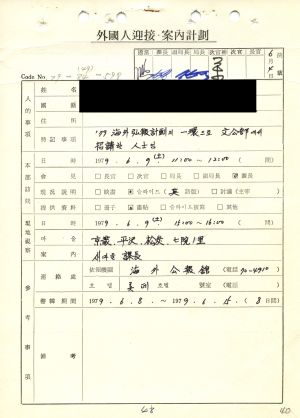 外國人迎接·案內計劃
Code No. 79-
課長 副局長 局長 次官補 次官 長官
6月 4日
姓名
國籍
住所
特記事項 '79 海外弘報計劃의 一環으로 文公部에서 招請한 人士임
人的事項
日時 1979. 6. 9.(土) 11:00~12:00 (間)
面會 長官 次官 局長 課長
現況說明 映畵 슬라이드(英語版) 討議(主宰)
提供資料 冊子 畵帖 슬라이드複寫 其他
本部訪問
日時 1979. 6. 9.(土) 15:00~16:00 (間)
마을 京畿, 平沢, 松炭, 七院1里
案內 새마을 課長
現地視察
連絡處 依賴機關 海外公報館 (電話 70-4910)
호텔 호텔 號室 (電話 )
滯韓期間 1979. 6. 8. ~ 1979. 6. 15. (8日間)
備考
參考事項